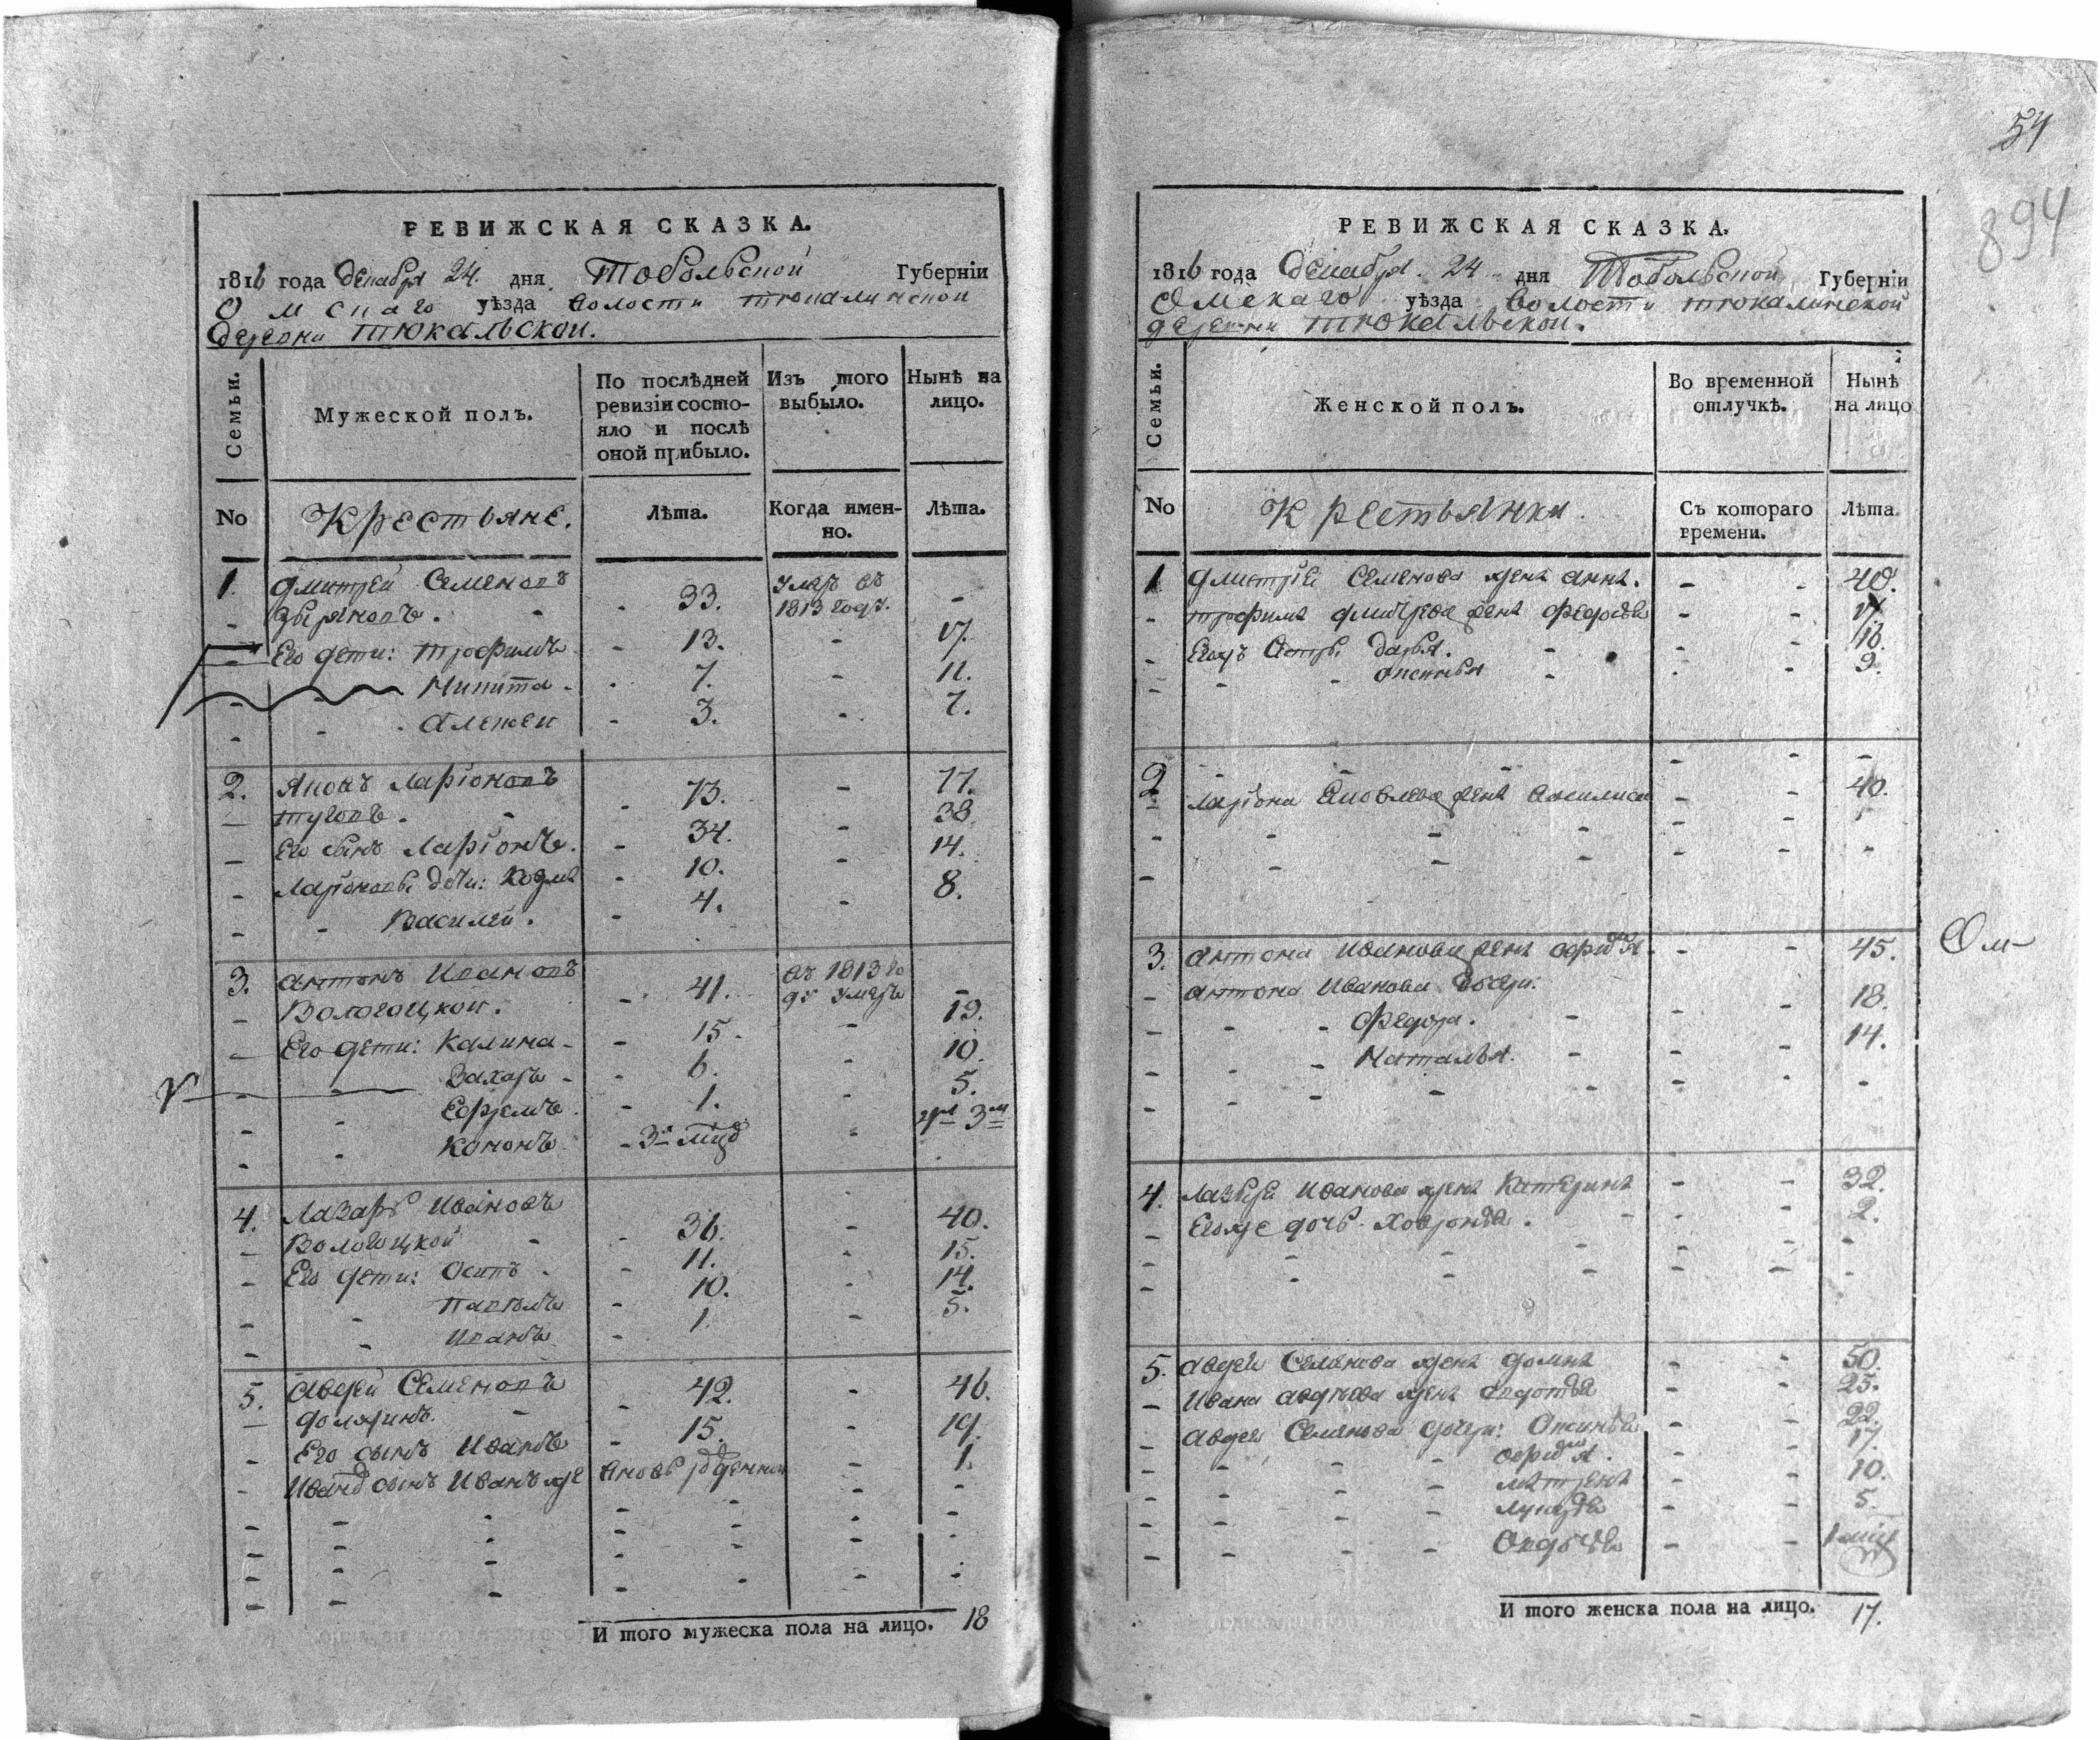 54
894
РЕВИЖСКАЯ СКАЗКА.
1816 года Декабря 24. дня Тобольской Губерніи
Омскаго уѣзда волости тюкалинской
деревни тюкальской.
Семьи.
Мужеской полъ.
По послѣдней ревизіи состо-
яло и послѣ
оной прибыло.
Изъ того
выбыло.
Нынѣ на
лицо.
No
Крестьяне.
Лѣта.
Когда имен-
но.
Лѣта.
1. Дмитрей Семеновъ 33. умеръ въ -
Зыряновъ. 1813 году.
Его дети: трофимъ 13. - 17.
Никита 7. - 11.
Алексеи 3. - 7.
2. Яковъ Ларіоновъ 73. - 77.
туговъ.
Его сынъ Ларіонъ. 34. - 38.
Ларіоновы дети: Козма 10. - 14.
Василей. 4. - 8.
3. антонъ Ивановъ 41. въ 1813 го -
Вологоцкой. ду умеръ
Его дети: Калина 15. - 19.
Захаръ 6. - 10.
Ефремъ 1. - 5.
Кононъ
4. Лазарь Ивановъ 36. - 40.
Вологоцкой
Его дети: Осипъ 11. - 15.
Павелъ 10. - 14.
Иванъ 1. - 5.
5. Авдей Семеновъ 42. - 46.
Его сынъ Иванъ 15. - 19.
сынъ Иванъ же вновь рожденной - 1.
И того мужеска пола на лицо. 18
РЕВИЖСКАЯ СКАЗКА.
1816 года Декабря 24 дня Тобольской Губерніи
Омскаго уѣзда волости тюкалинской
деревни тюкальской.
Семьи.
Женской полъ.
Во временной
отлучкѣ.
Нынѣ
на лицо
No
Крестьянки.
Съ котораго
времени.
Лѣта
1 Дмитрія Семенова жена анна. - 40.
трофима Дмитрева жена Федосья -
дарья. - 16.
аксинья - 9.
2 Ларіона Яковлева жена Василиса - 40.
3. антона Иванова жена - 45.
антона Иванова дочери:
Федора. - 18.
Наталья. - 14.
4. Лазаря Иванова жена Катерина - 32.
Егоже дочь Хавронья. - 2.
5. авдея Семенова жена домна - 50.
Ивана авдѣева жена федотья - 25.
авдея Семенова дочери: - 22.
17.
матрена - 10.
лукерья - 5.
И того женска пола на лицо. 17.